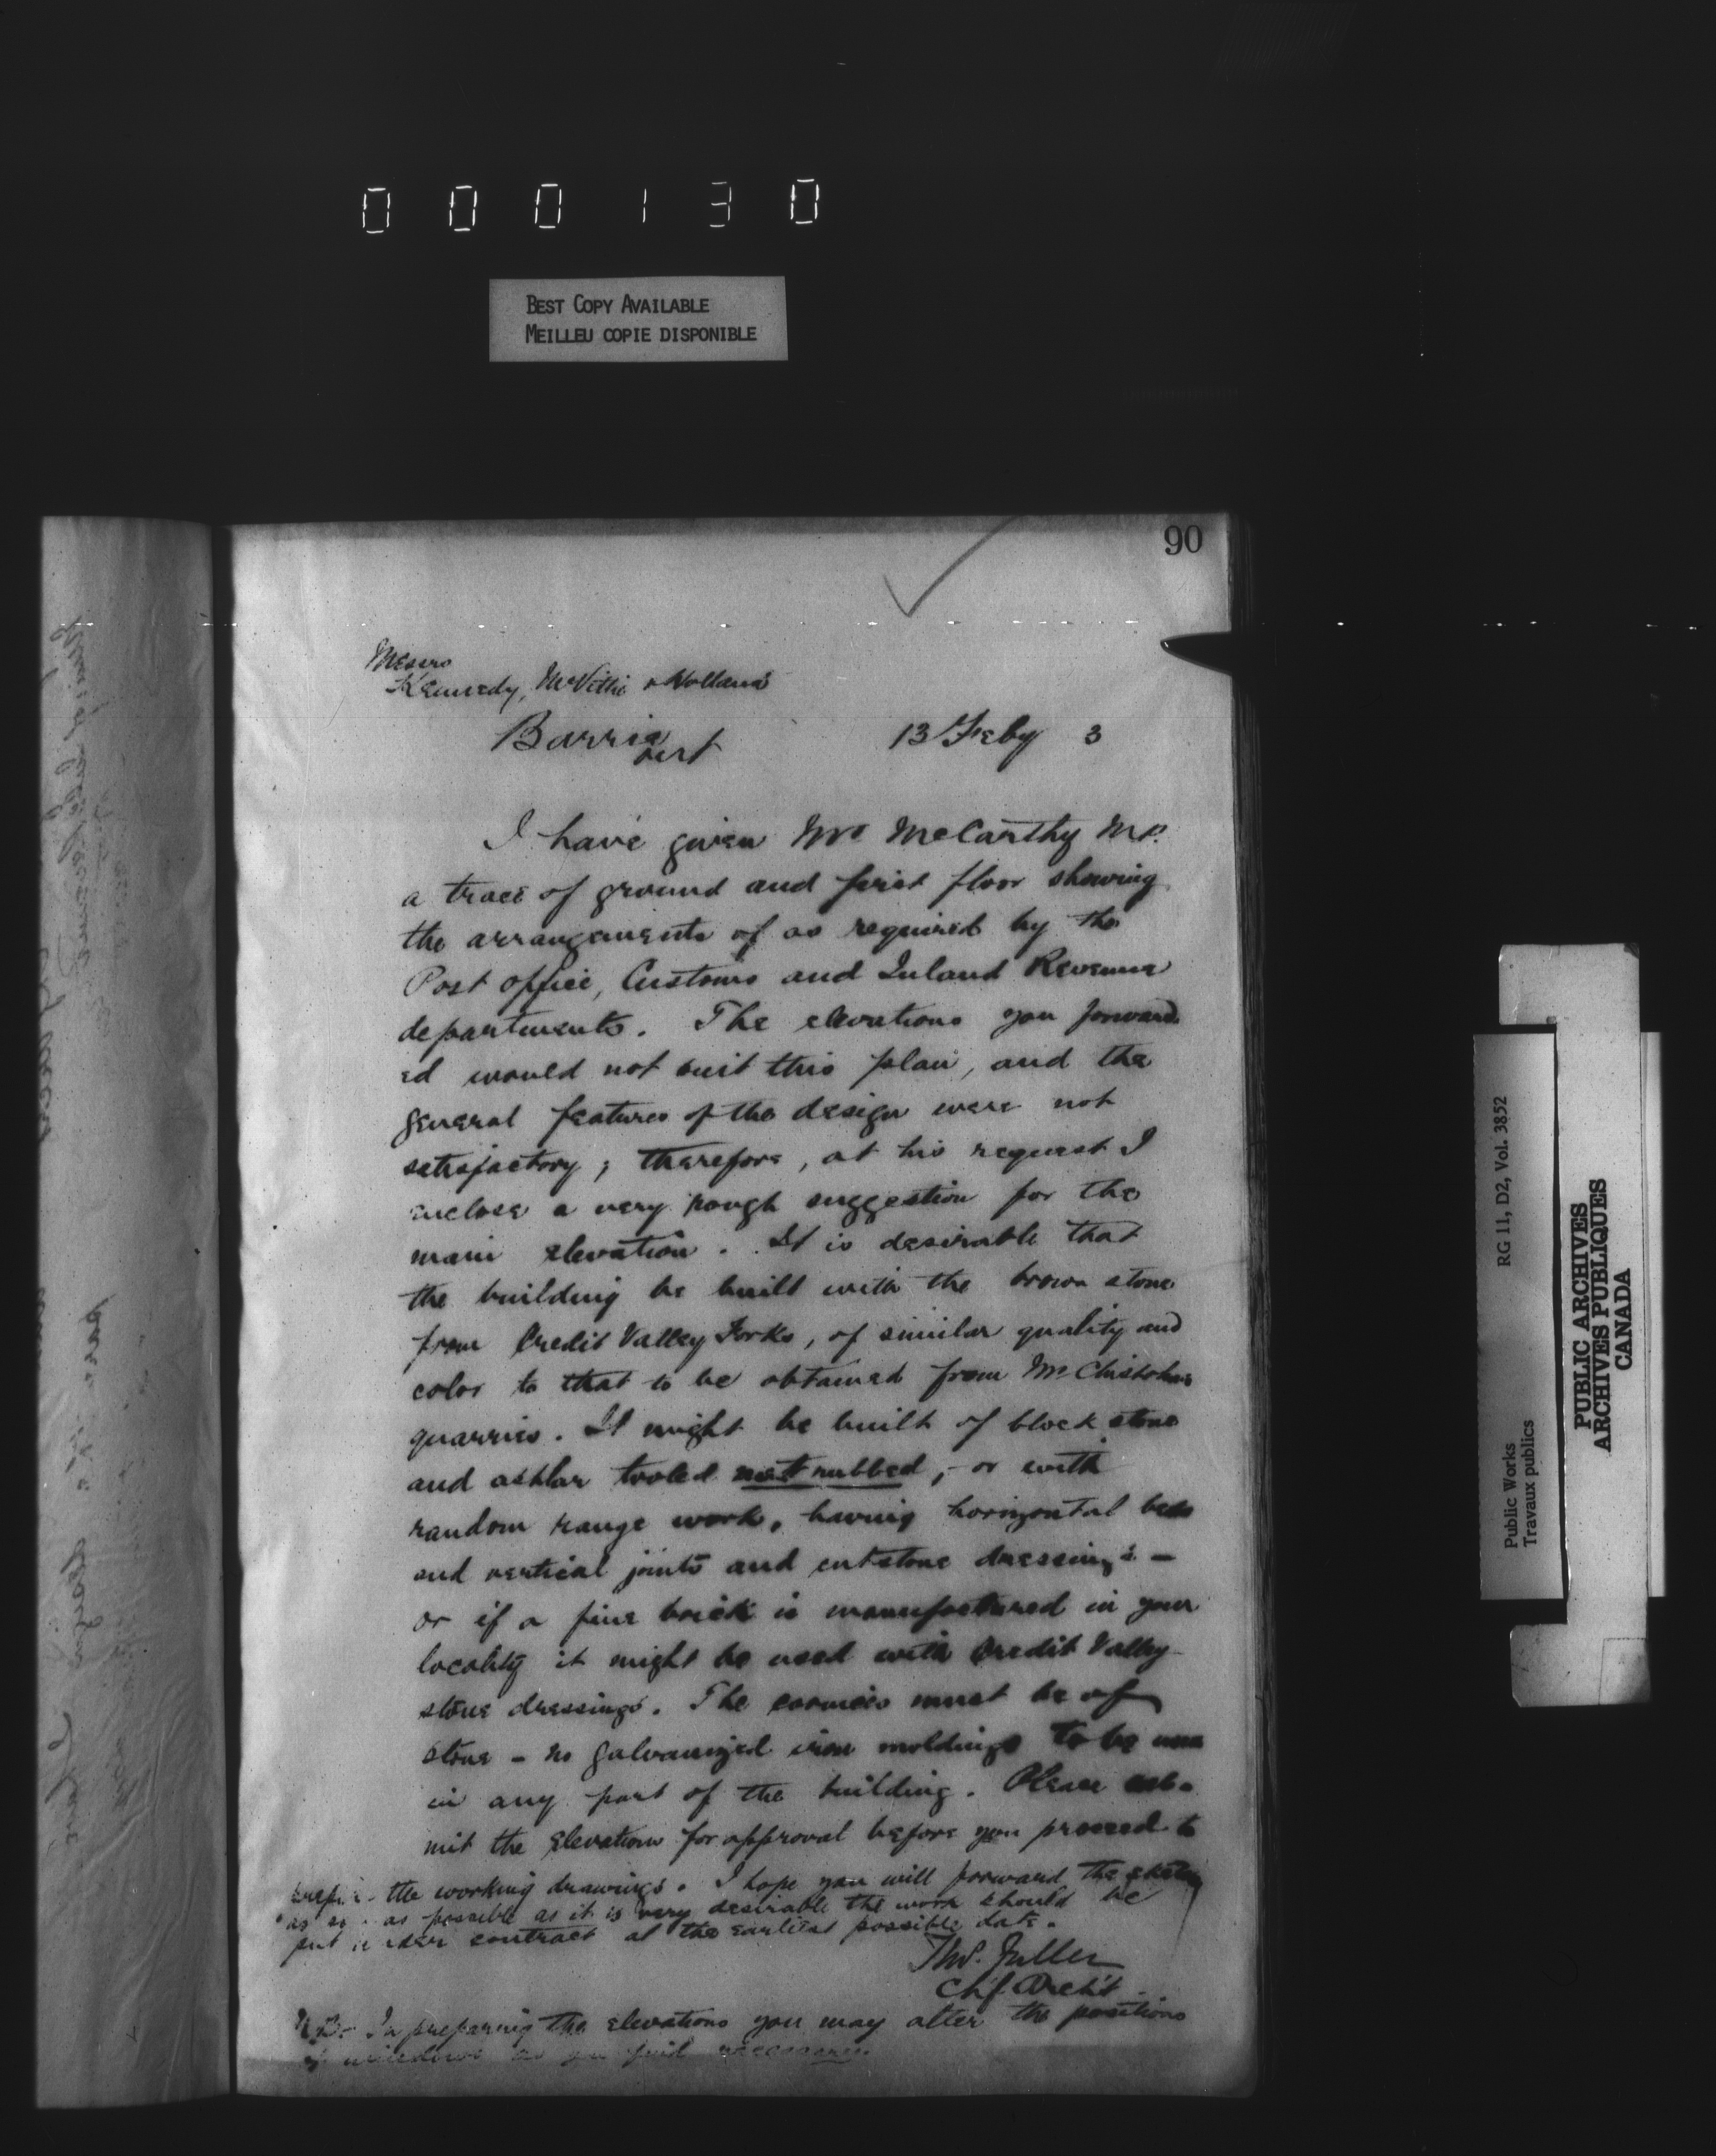 0 0 0 1 3 0
BEST COPY AVAILABLE
MEILLEU COPIE DISPONIBLE
90
Messrs
Kennedy, McVittie & Holland
Barrie
Ont
13 Feby 3
I have given Mr McCarthy M.P.
a trace of ground and first floor showing
the arrangements of as required by the
Post Office, Customs and Inland Revenue
departments. The elevations you forward
ed would not suit this plan, and the
general features of the design were not
satisfactory; therefore, at his request I
enclose a very rough suggestion for the
main elevation. It is desirable that
the building be built with the brown stone
from Credit Valley Forks, of similar quality and
color to that to be obtained from Mr Chisholms
quarries. It might be built of block stone
and ashlar tooled not rubbed, - or with
random range work, having horizontal beds
and vertical joints and cutstone dressings -
or if a fine brick is manufactured in your
locality it might be used with Credit Valley
stone dressings. The cornices must be of
stone - no galvanized iron moldings to be used
in any part of the building. Please sub-
mit the elevations for approval before you proceed to
prepare the working drawings. I hope you will forward the sketch
as soon as possible as it is very desirable the work should be
put under contract at the earliest possible date.
Thos. Fuller
Ch'f. Arch't.
N.B. - In preparing the elevations you may alter the positions
of windows as you find necessary.
RG 11, D2, Vol. 3852
Public Works
Travaux publics
PUBLIC ARCHIVES
ARCHIVES PUBLIQUES
CANADA